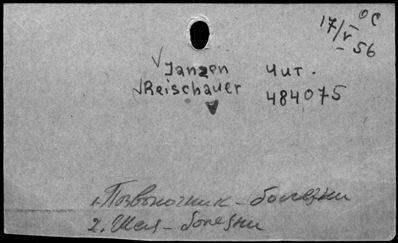 17/V-56 ОС
Janzen Чит.
Reischauer 484075
1. Позвоночник - болезни
2. Шея - болезни